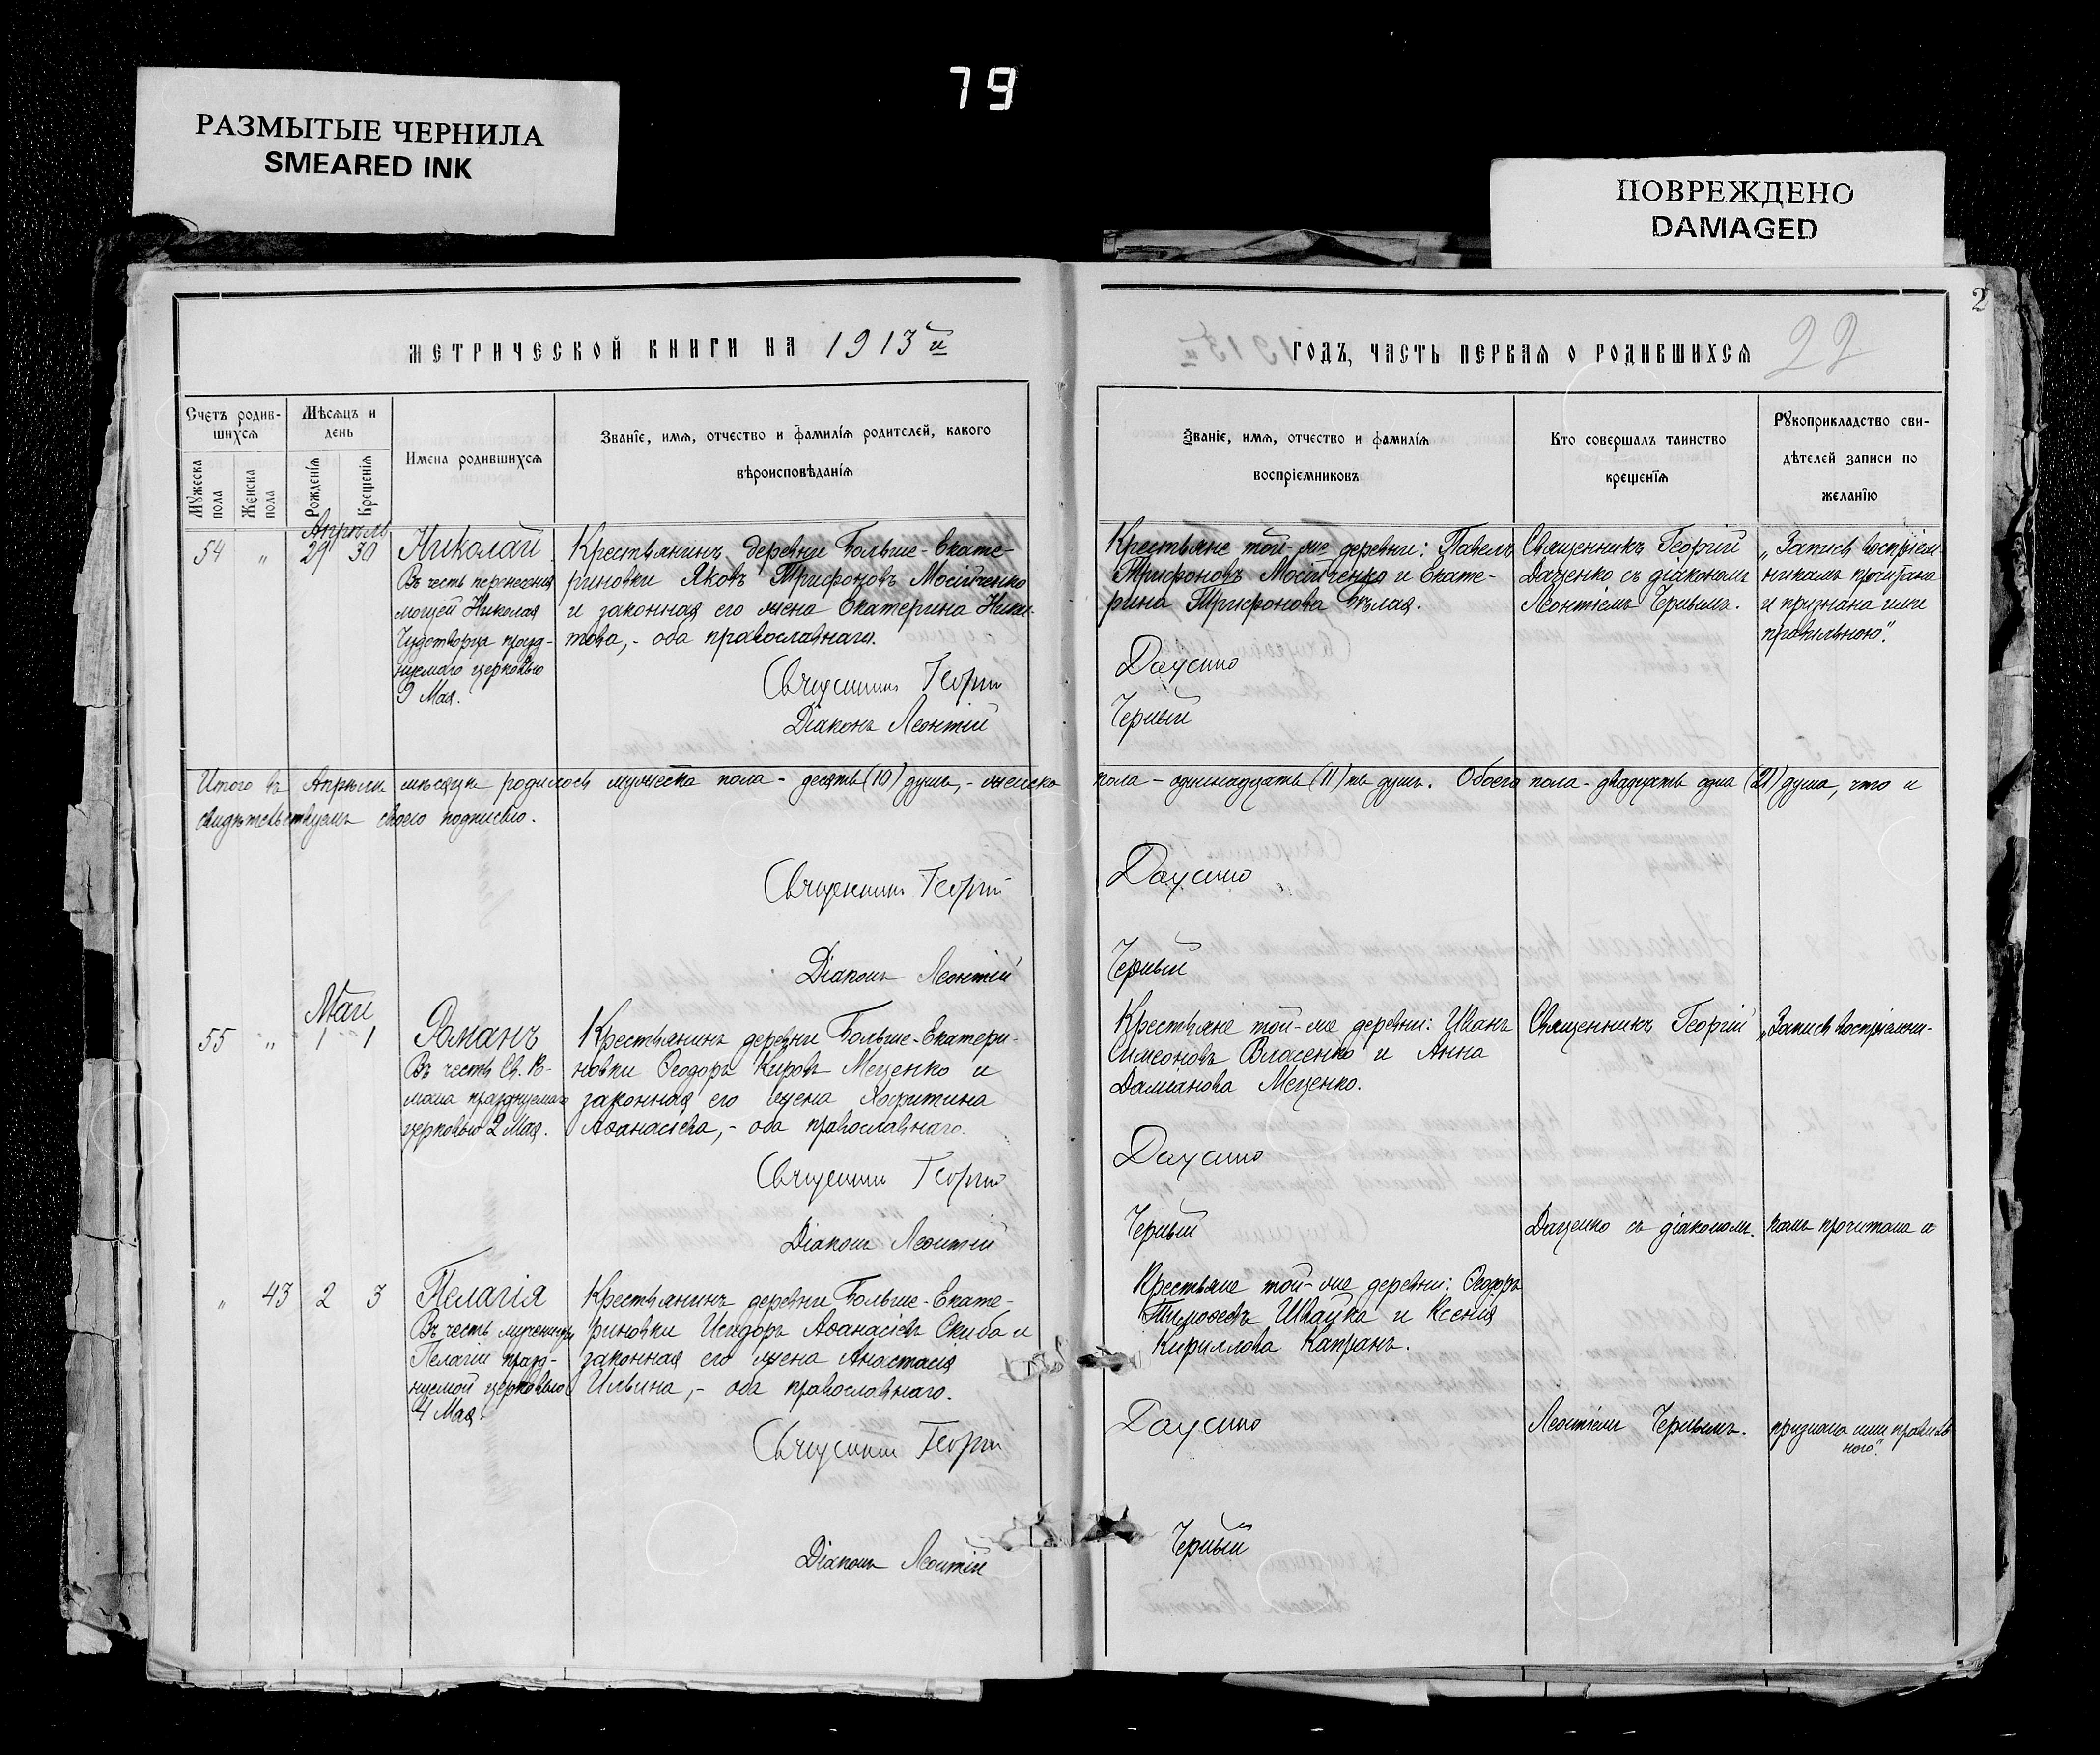 79
РАЗМЫТЫЕ ЧЕРНИЛА
SMEARED INK
ПОВРЕЖДЕНО
DAMAGED
2
МЕТРИЧЕСКОЙ КНИГИ НА 1913й
ГОДЪ, ЧАСТЬ ПЕРВАЯ О РОДИВШИХСЯ
22
Счетъ родив-
шихся
Мѣсяцъ и
день
Мужеска
пола
Женска
пола
Рожденія
Крещенія
Имена родившихся
Званіе, имя, отчество и фамилія родителей, какого
вѣроисповѣданія
Званіе, имя, отчество и фамилія
воспріемниковъ
Кто совершалъ таинство
крещенія
Рукоприкладство сви-
дѣтелей записи по
желанію
Апрѣль
54 „ 29 30
Николай
Въ честь перенесенія
мощей Николая
Чудотворца празд-
нуемаго церковью
9 Мая.
Крестьянинъ деревни Больше-Екате-
риновки Яковъ Трифоновъ Мосійченко
и законная его жена Екатерина Ники-
това, - оба православнаго.
Священникъ Георгій
Діаконъ Леонтій
Крестьяне той-же деревни: Павелъ
Трифоновъ Мосійченко и Екате-
рина Трифонова Бѣлая.
Даценко
Черный
Священникъ Георгій
Даценко съ діакономъ
Леонтіемъ Чернымъ.
„Запись воспріем-
никамъ прочитана
и признана ими
правильною".
Итого въ Апрѣлѣ мѣсяцѣ родилось мужеска пола - десять (10) душъ, - женска пола - одиннадцать (11) ть душъ. Обоего пола - двадцать одна (21) душа, что и
свидѣтельствуемъ своею подписью.
Священникъ Георгій
Даценко
Діаконъ Леонтій
Черный
Май
55 „ 1 1
Романъ
Въ честь Св. Ро-
мана празднуемаго
церковью 2 Мая.
Крестьянинъ деревни Больше-Екатери-
новки Ѳеодоръ Кировъ Мещенко и
законная его жена Харитина
Аѳанасіева, - оба православнаго.
Священникъ Георгій
Діаконъ Леонтій
Крестьяне той-же деревни: Иванъ
Симеоновъ Власенко и Анна
Даміанова Мещенко.
Даценко
Черный
Священникъ Георгій
Даценко съ діакономъ
„Запись воспріемни-
камъ прочитана и
„ 43 2 3
Пелагія
Въ честь мученицы
Пелагіи празд-
нуемой церковью
4 Мая.
Крестьянинъ деревни Больше-Екате-
риновки Исидоръ Аѳанасіевъ Скиба и
законная его жена Анастасія
Ильина, - оба православнаго.
Священникъ Георгій
Діаконъ Леонтій
Крестьяне той-же деревни: Ѳеодоръ
Тимоѳеевъ Швайка и Ксенія
Кириллова Капранъ.
Даценко
Черный
Леонтіемъ Чернымъ.
признана ими правиль-
ною".